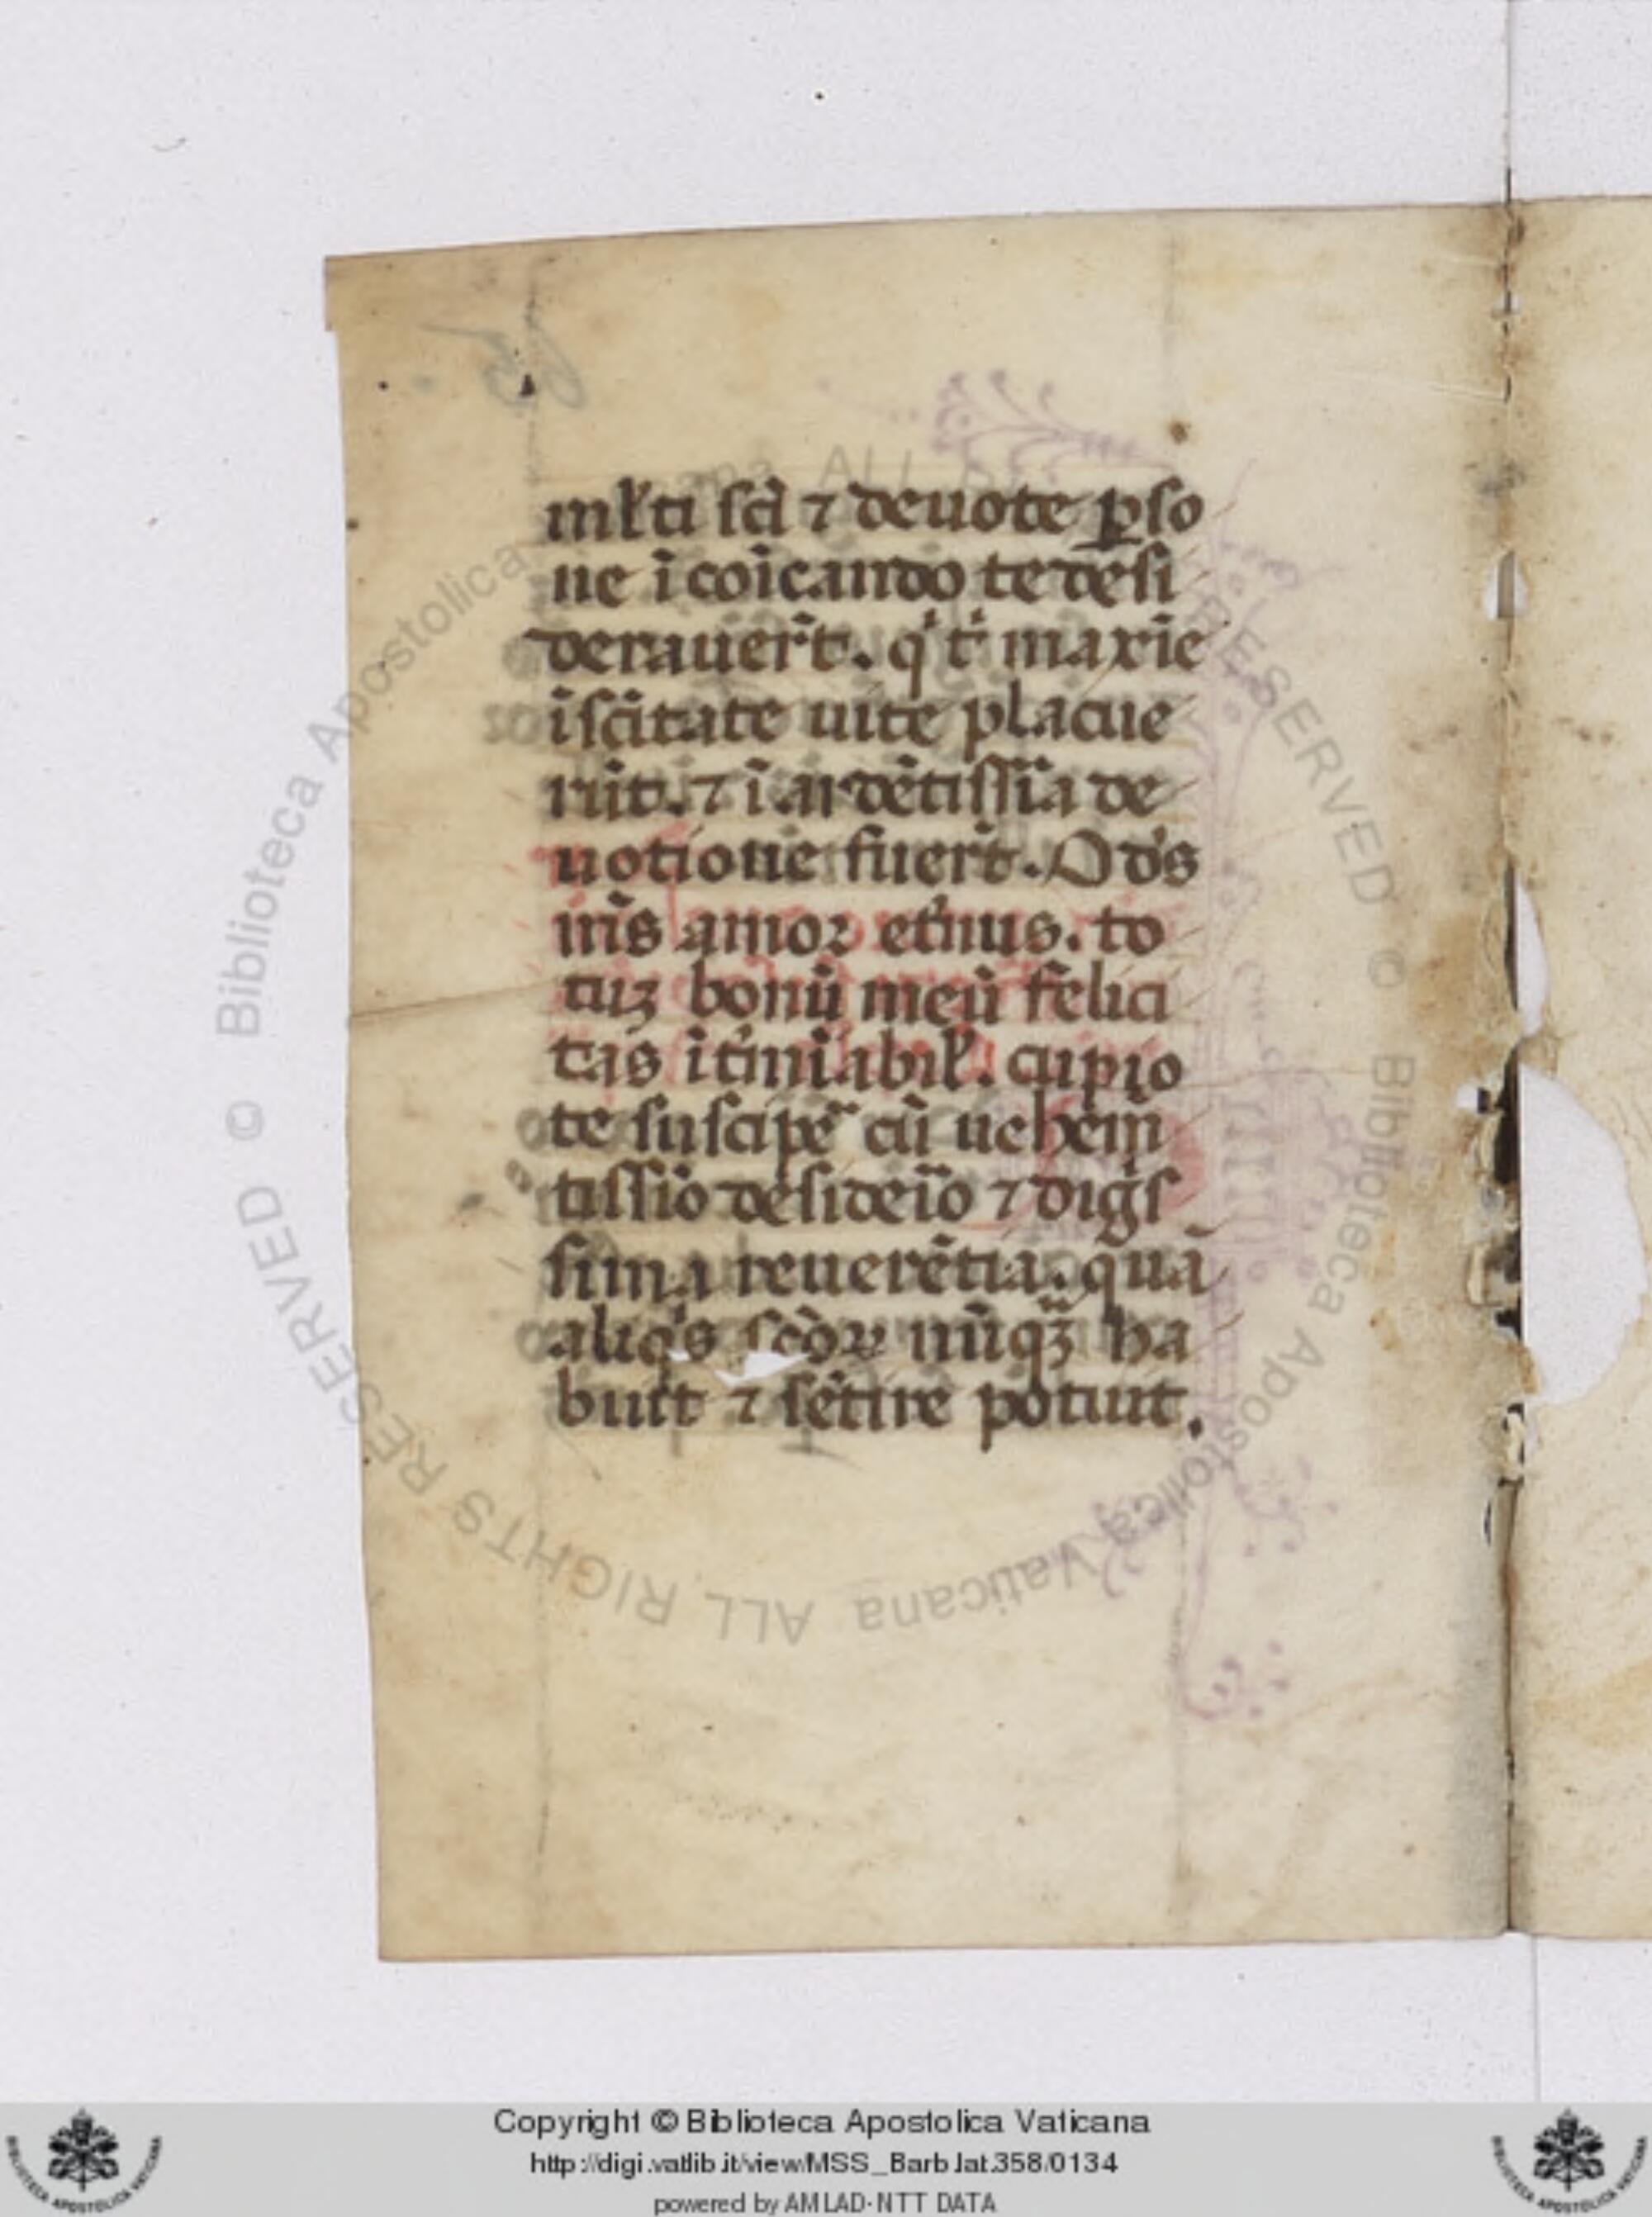 ml̄ti sc̄i ⁊ deuote ꝑso
ne ī coīcando te desi
derauer̄t. qͥ tⁱ maxīe
ī sc̄itate uite placue
rūt. ⁊ ī ardētissīa de
uotione fuer̄t. O dˢs
mˢs amor et̓nus. to
tuꝫ bonū meū felici
tas īt̓miabil̓. cupio
te suscipe᷑ cū uehem̄
tissīo desideīo ⁊ digͥs
sima reuerētia. quā
aliqͥs sc̄oꝝ nūqꝫ ha
buit ⁊ sētire potuit.
65.
© Biblioteca Apostolica Vaticana ALL RIGHTS RESERVED
© Biblioteca Apostolica Vaticana ALL RIGHTS RESERVED
Copyright © Biblioteca Apostolica Vaticana
http://digi.vatlib.it/view/MSS_Barb.lat.358/0134
powered by AMLAD-NTT DATA
BIBLIOTECA APOSTOLICA VATICANA
BIBLIOTECA APOSTOLICA VATICANA